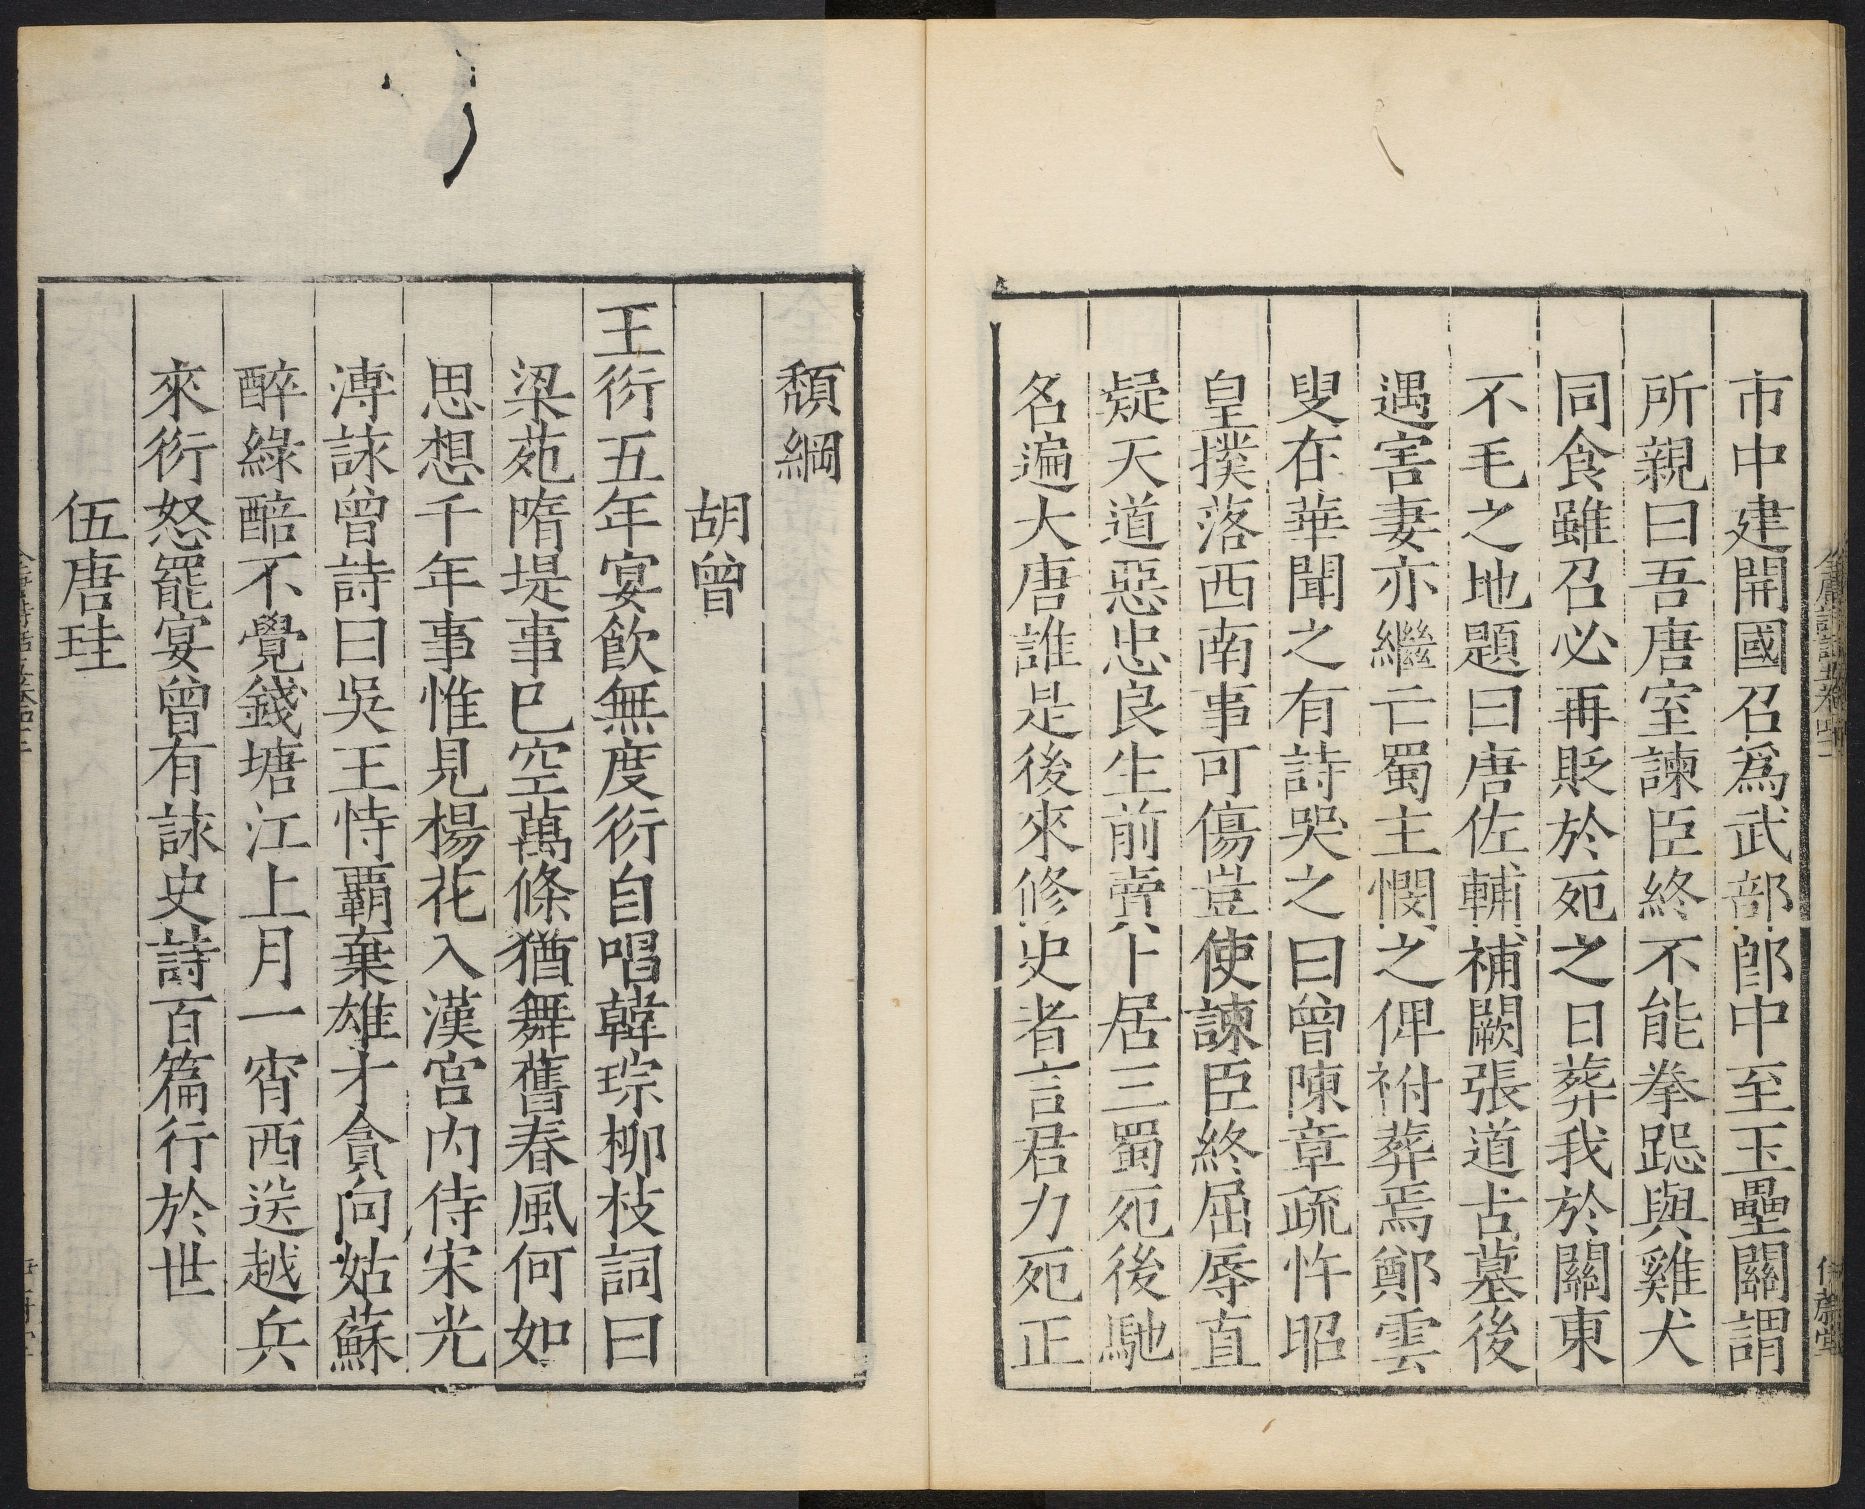 市中建開國召爲武部郎中至玉壘關謂
所親曰吾唐室諫臣終不能拳跽與雞犬
同食雖召必再貶於死之日葬我於關東
不毛之地題曰唐佐輔補闕張道古墓後
遇害妻亦繼亡蜀主憫之俾祔葬焉鄭雲
叟在華聞之有詩哭之曰曾陳章疏忤昭
皇撲落西南事可傷豈使諫臣終屈辱直
疑天道惡忠良生前賣卜居三蜀死後馳
名遍大唐誰是後來修史者言君力死正
頹綱
胡曾
王衍五年宴飲無度衍自唱韓琮柳枝詞曰
梁苑隋堤事已空萬條猶舞舊春風何如
思想千年事惟見楊花入漢宮內侍宋光
溥詠曾詩曰吳王恃覇棄雄才貪向姑蘇
醉綠醅不覺錢塘江上月一宵西送越兵
來衍怒罷宴曾有詠史詩百篇行於世
伍唐珪